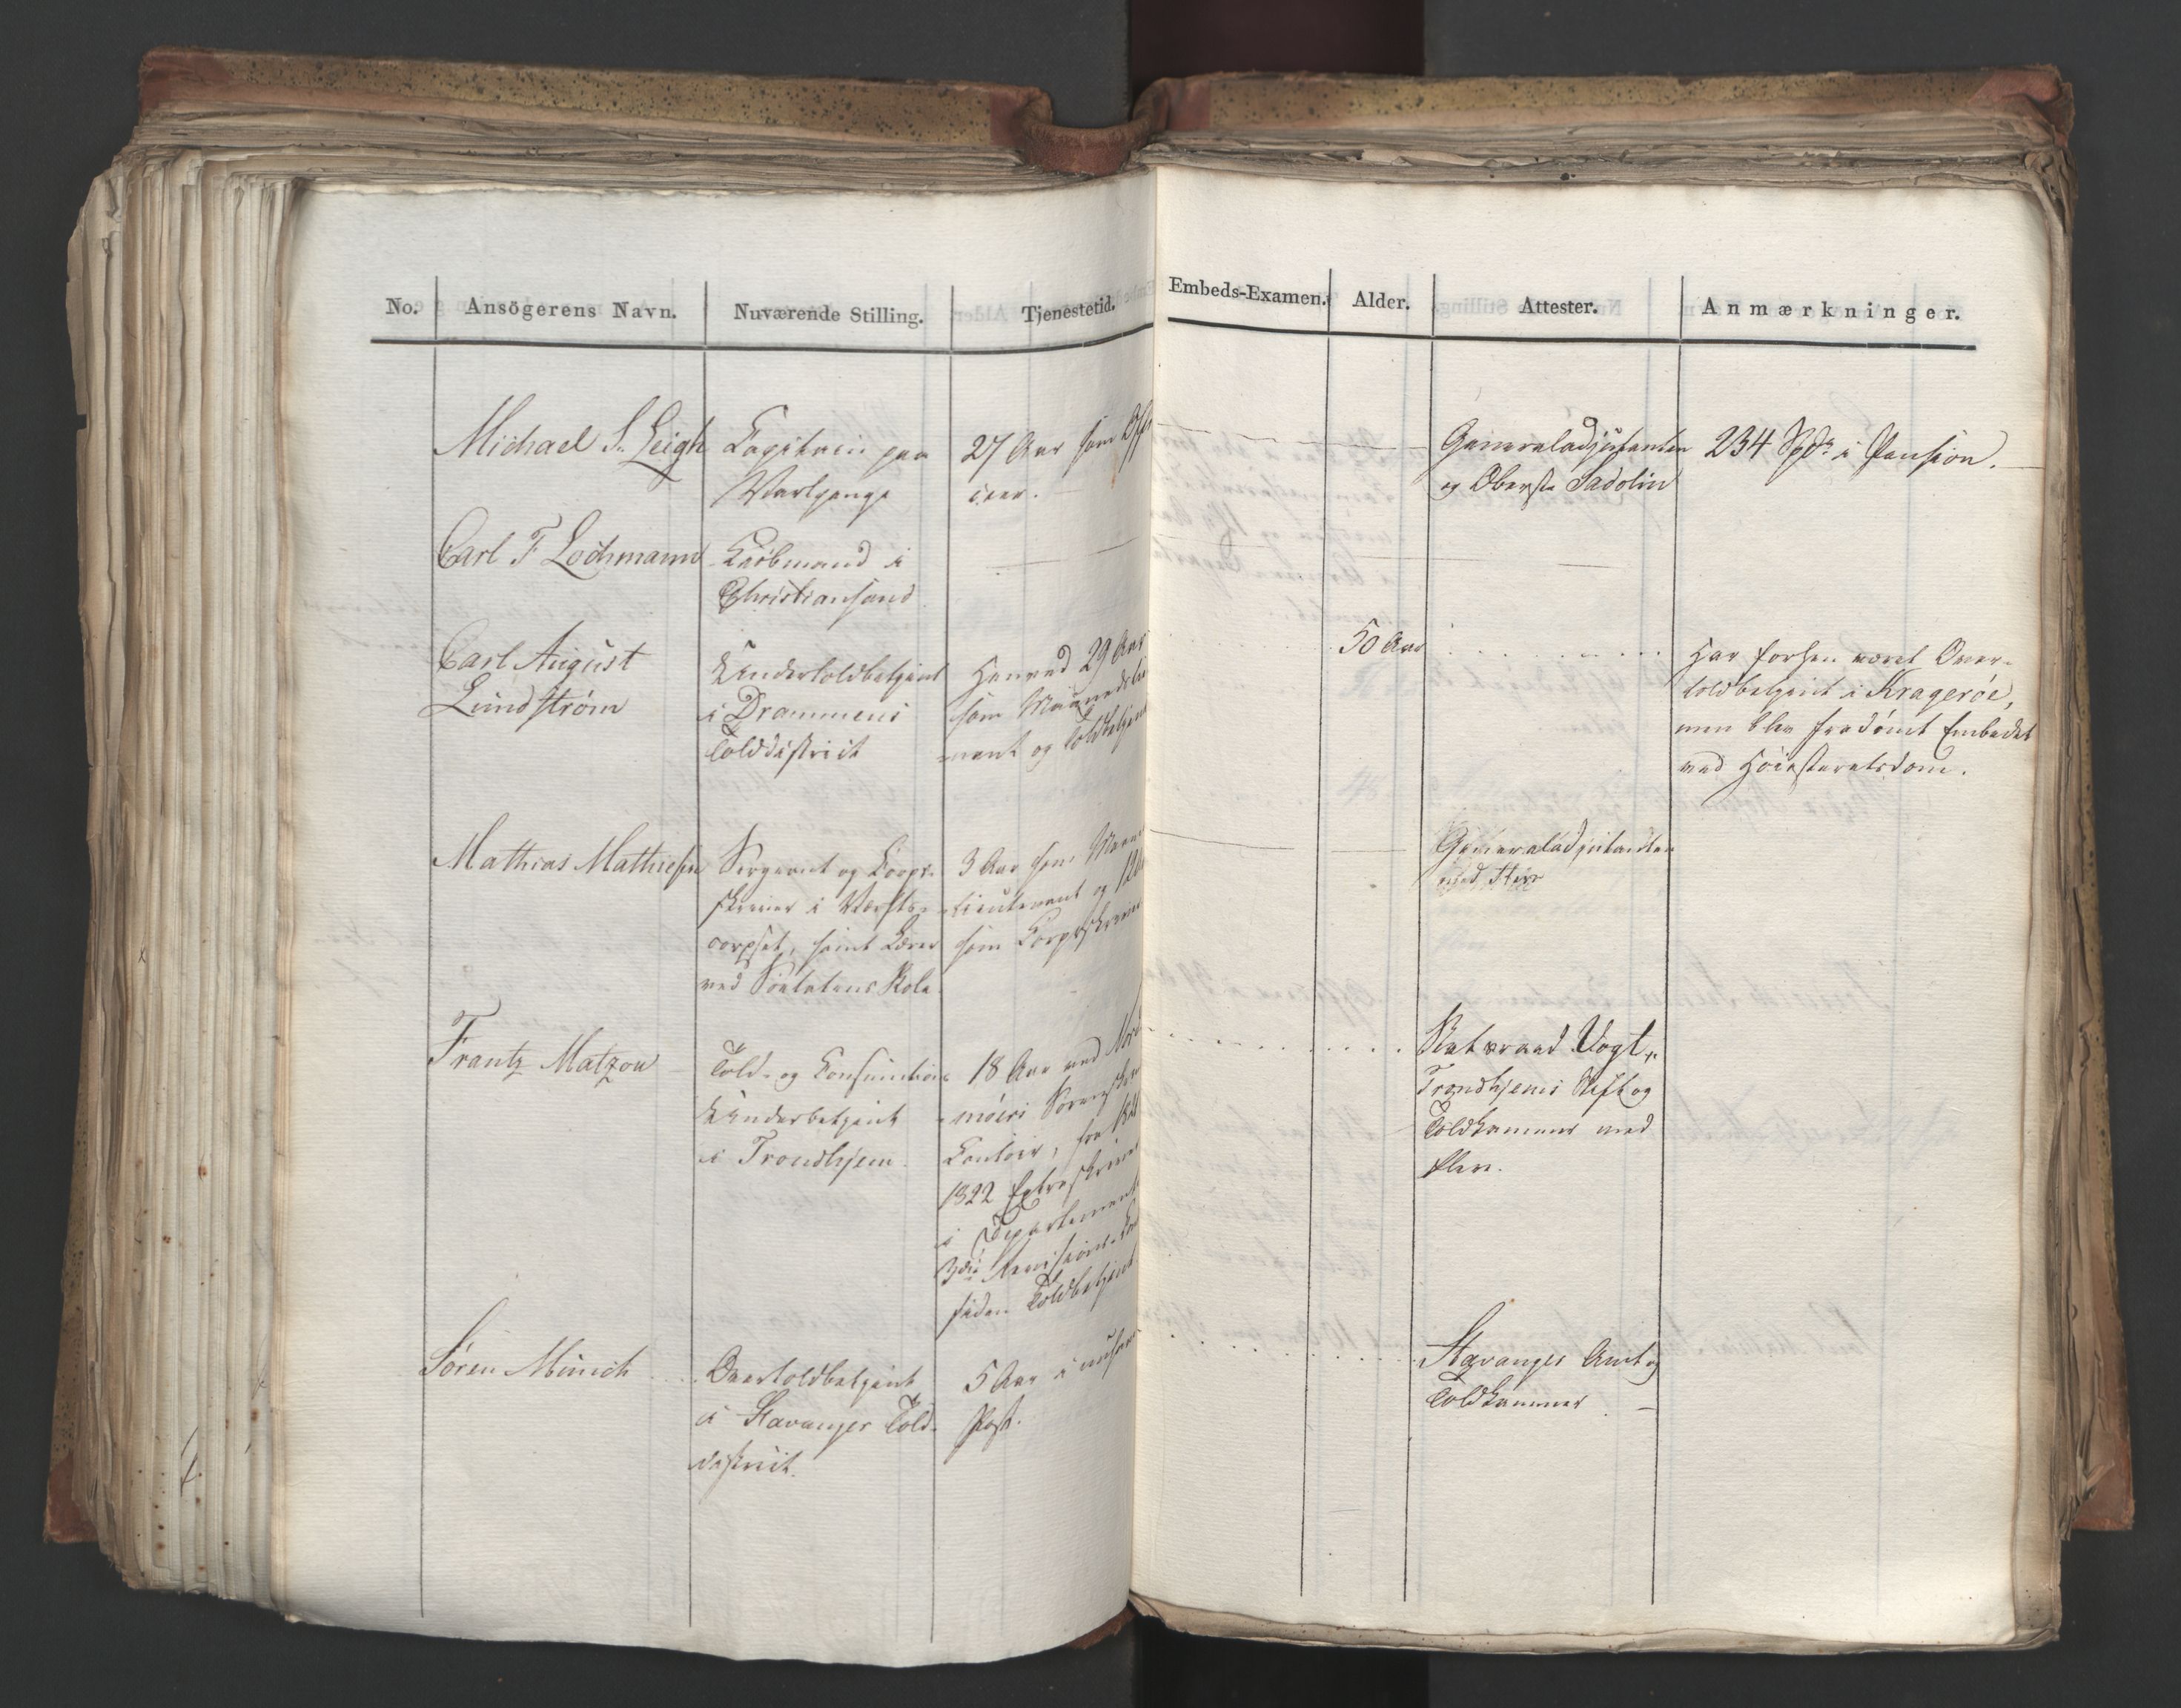 No. Ansögerens Navn. Nuværende Stilling. Tjenestetid. Embeds-Examen. Alder. Attester. Anmærkninger.
Michael S. Leigh
Capitain paa
Vartpenge
27 Aar som Offi
cier.
Generaladjutanten
og Oberste Sadolin
234 Spd i Pension.
Carl F Lochmann
Kiöbmand i
Christiansand
Carl August
Lundstrøm
Undertoldbetjent
i Drammens
Tolddistrict
Henved 29 Aar
som
nant og Toldbetjent
50 Aar
Har forhen været Over-
toldbetjent i Kragerøe,
men blev fradömt Embedet
ved Höiesteretsdom.
Mathias Mathiesen
Sergeant og Corps-
skriver i Værfts-
corpset, samt Lærer
ved Söetatens Skole
3 Aar som
Lieutenant og 12
som Corpsskriver
Generaladjutanten
med Flere
Frantz Matzow
Told- og Consumtions
Underbetjent
i Trondhjem.
18 Aar ved Nord
möers Sorenskriver
Contoir, fra 1821
1822 Extraskriver
i Departement
Revisions-
siden Toldbetjent
Statsraad Vogt,
Trondhjems Stift og
Toldkammer med
flere.
Søren Münch
Overtoldbetjent
i Stavanger Told-
district.
5 Aar i nuhav
Post.
Stavanger Amt og
Toldkammer